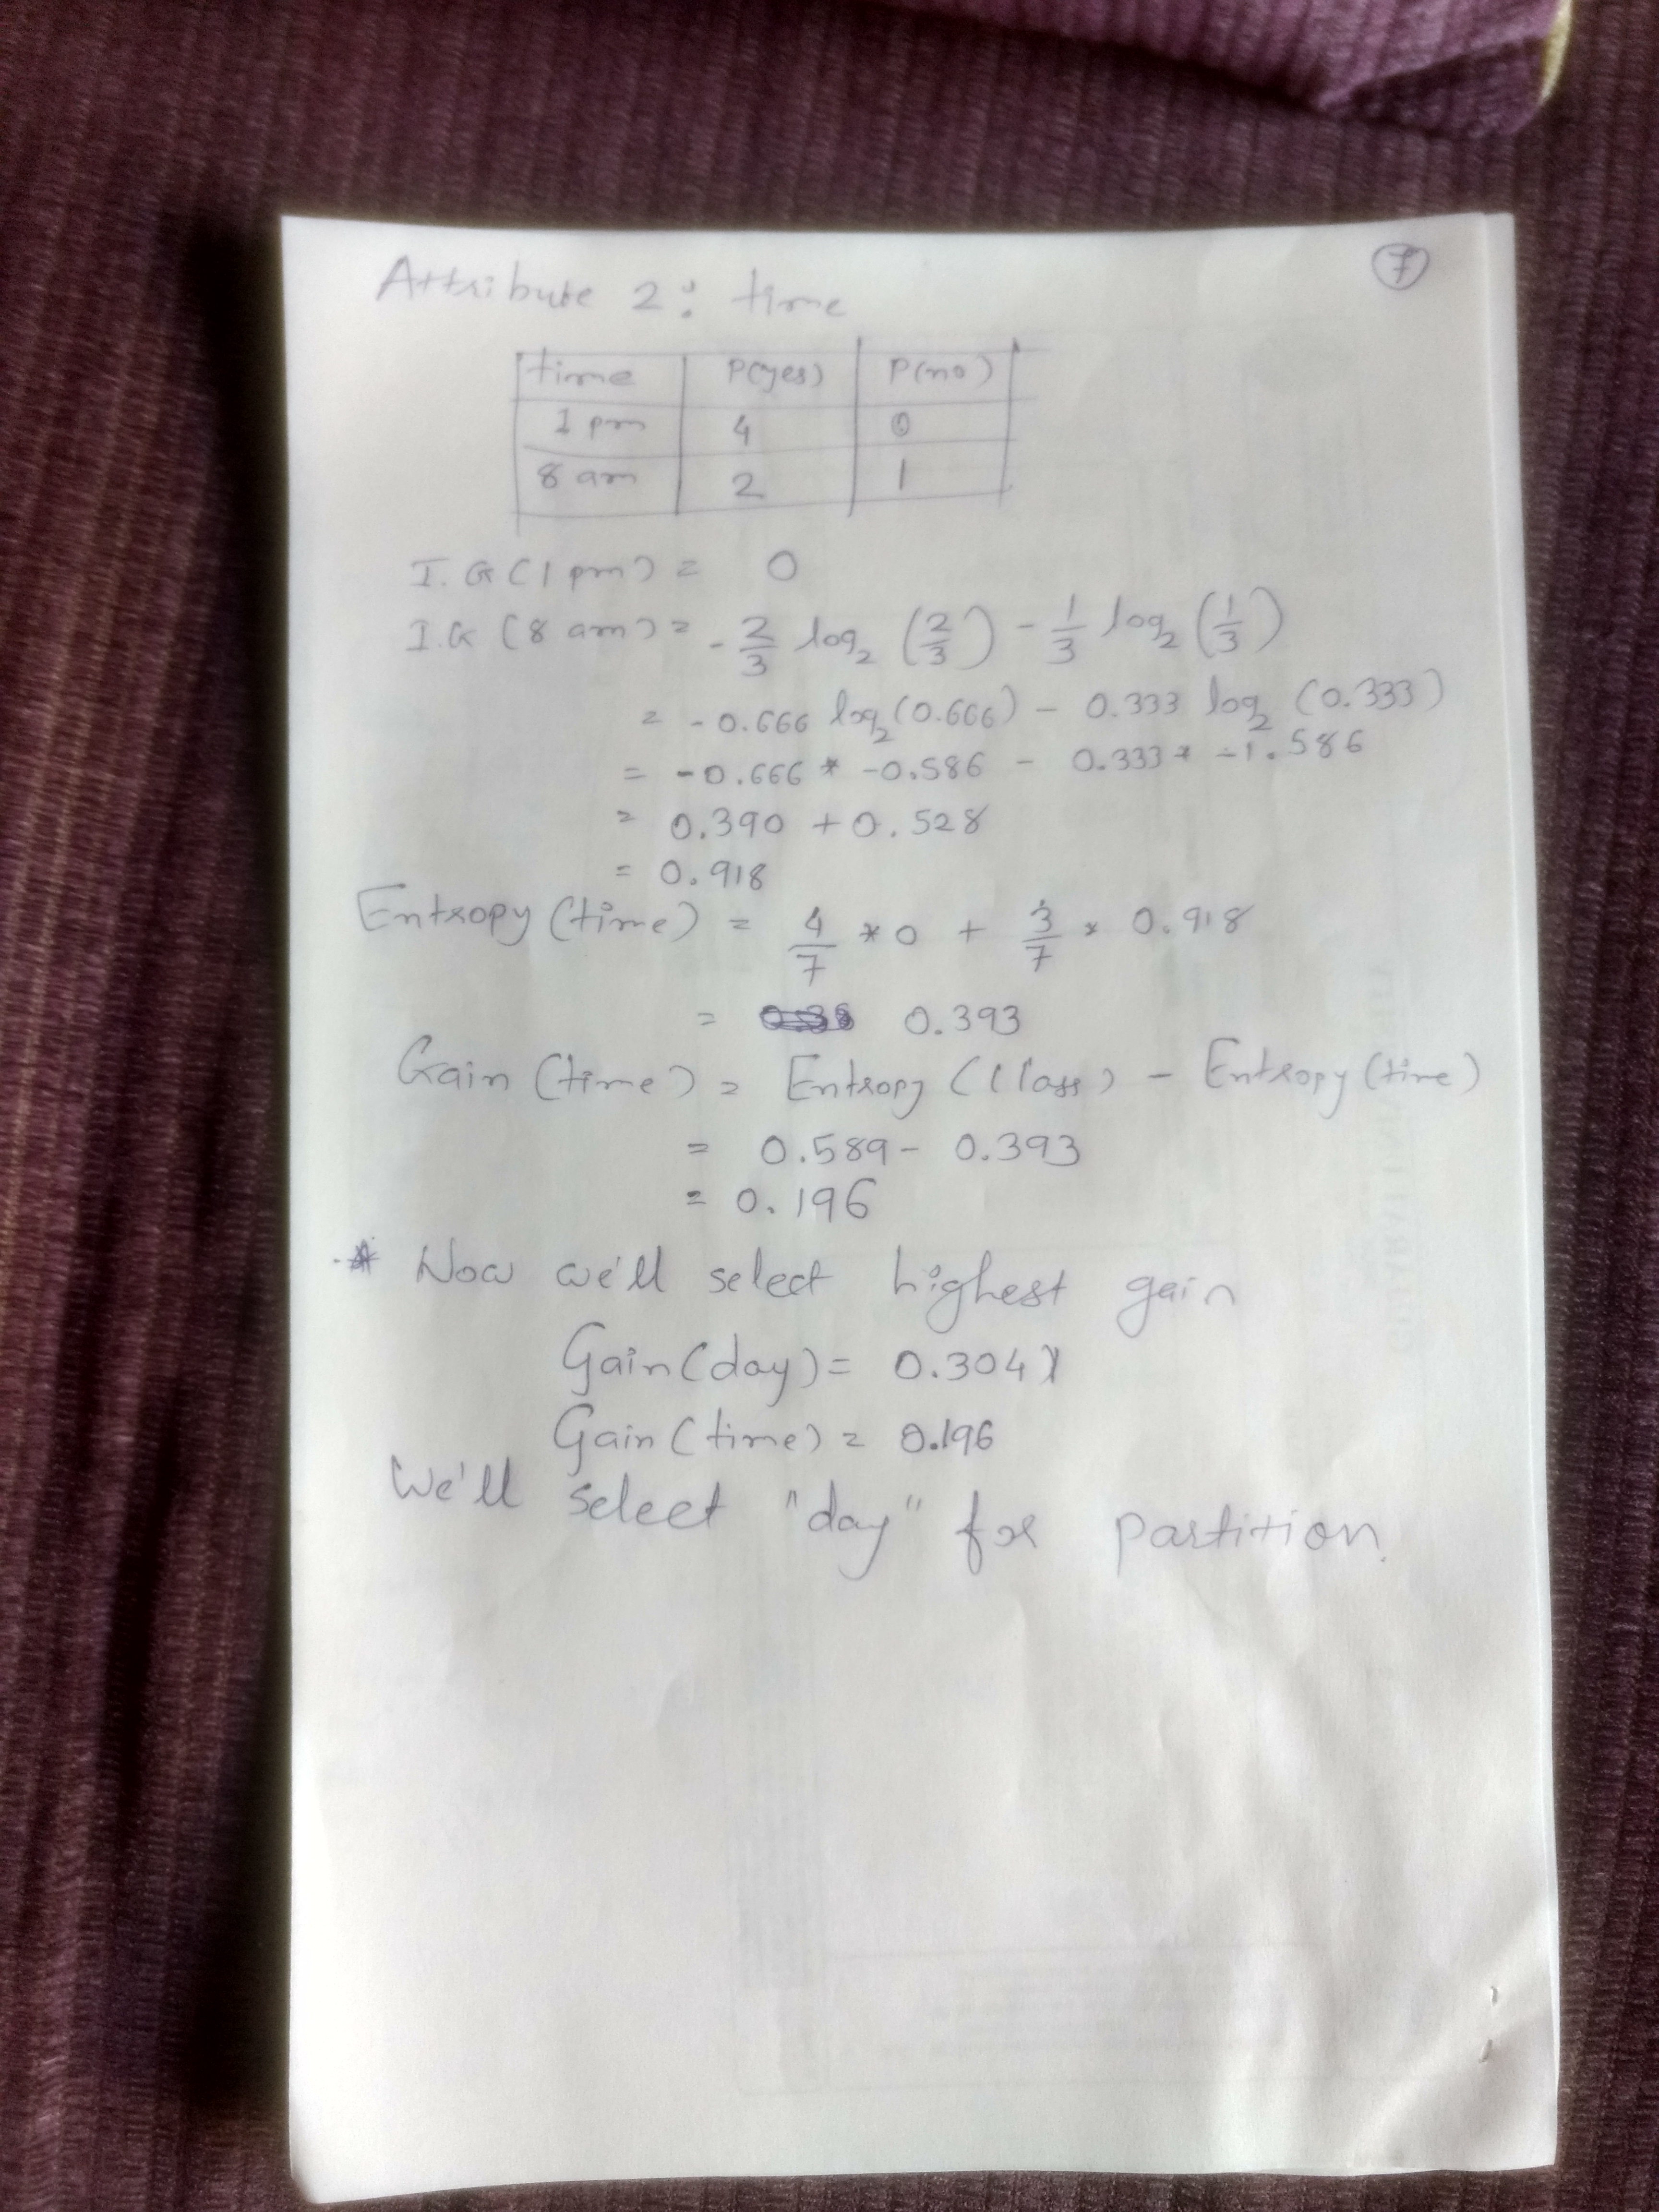 7
Attribute 2: time
time P(yes) P(no)
1 pm 4 0
8 am 2 1
I.G(1 pm) = 0
I.G (8 am) = - 2/3 log₂ (2/3) - 1/3 log₂ (1/3)
= -0.666 log₂(0.666) - 0.333 log₂ (0.333)
= -0.666 * -0.586 - 0.333 * -1.586
= 0.390 + 0.528
= 0.918
Entropy (time) = 4/7 * 0 + 3/7 * 0.918
= 0.393
Gain (time) = Entropy (Class) - Entropy (time)
= 0.589 - 0.393
= 0.196
* Now we'll select highest gain
Gain (day) = 0.304
Gain (time) = 0.196
We'll select "day" for partition.